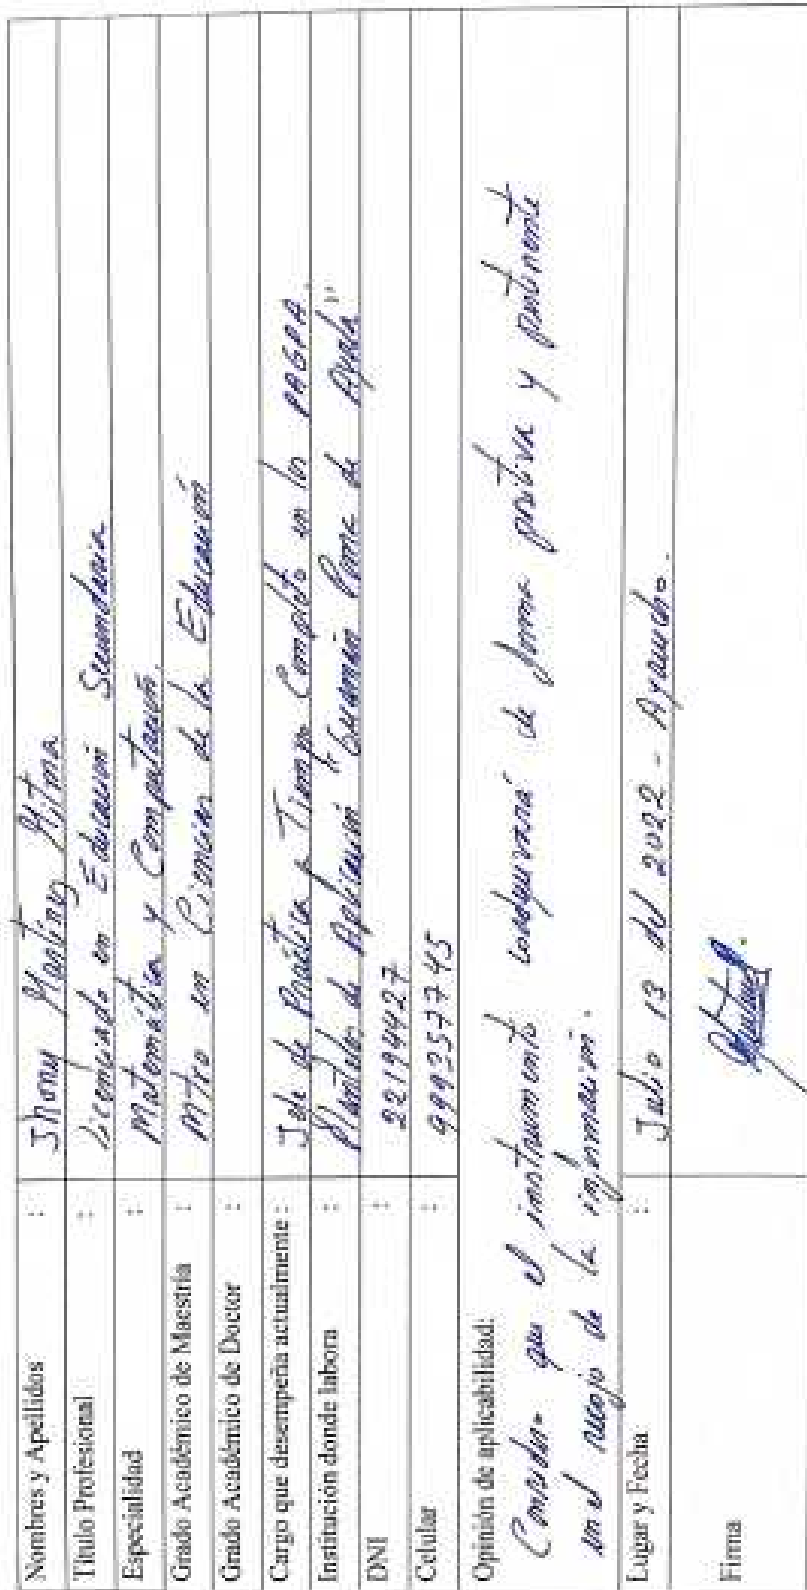 Nombres y Apellidos : Jhony Martinez Mitma
Titulo Profesional : Licenciado en Educación Secundaria
Especialidad : Matemática y Computación.
Grado Académico de Maestria : Mtro en Ciencias de la Educación
Grado Académico de Doctor :
Cargo que desempeña actualmente : Jefe de Práctica Tiempo Completo en los
Institución donde labora : Planteles de Aplicación "Guamán Poma de Ayala"
DNI : 22194427
Celular : 999357745
Opinión de aplicabilidad:
Considero que el instrumento de forma positiva y pertinente
en el recojo de la información.
Lugar y Fecha : Julio 13 del 2022 - Ayacucho.
Firma